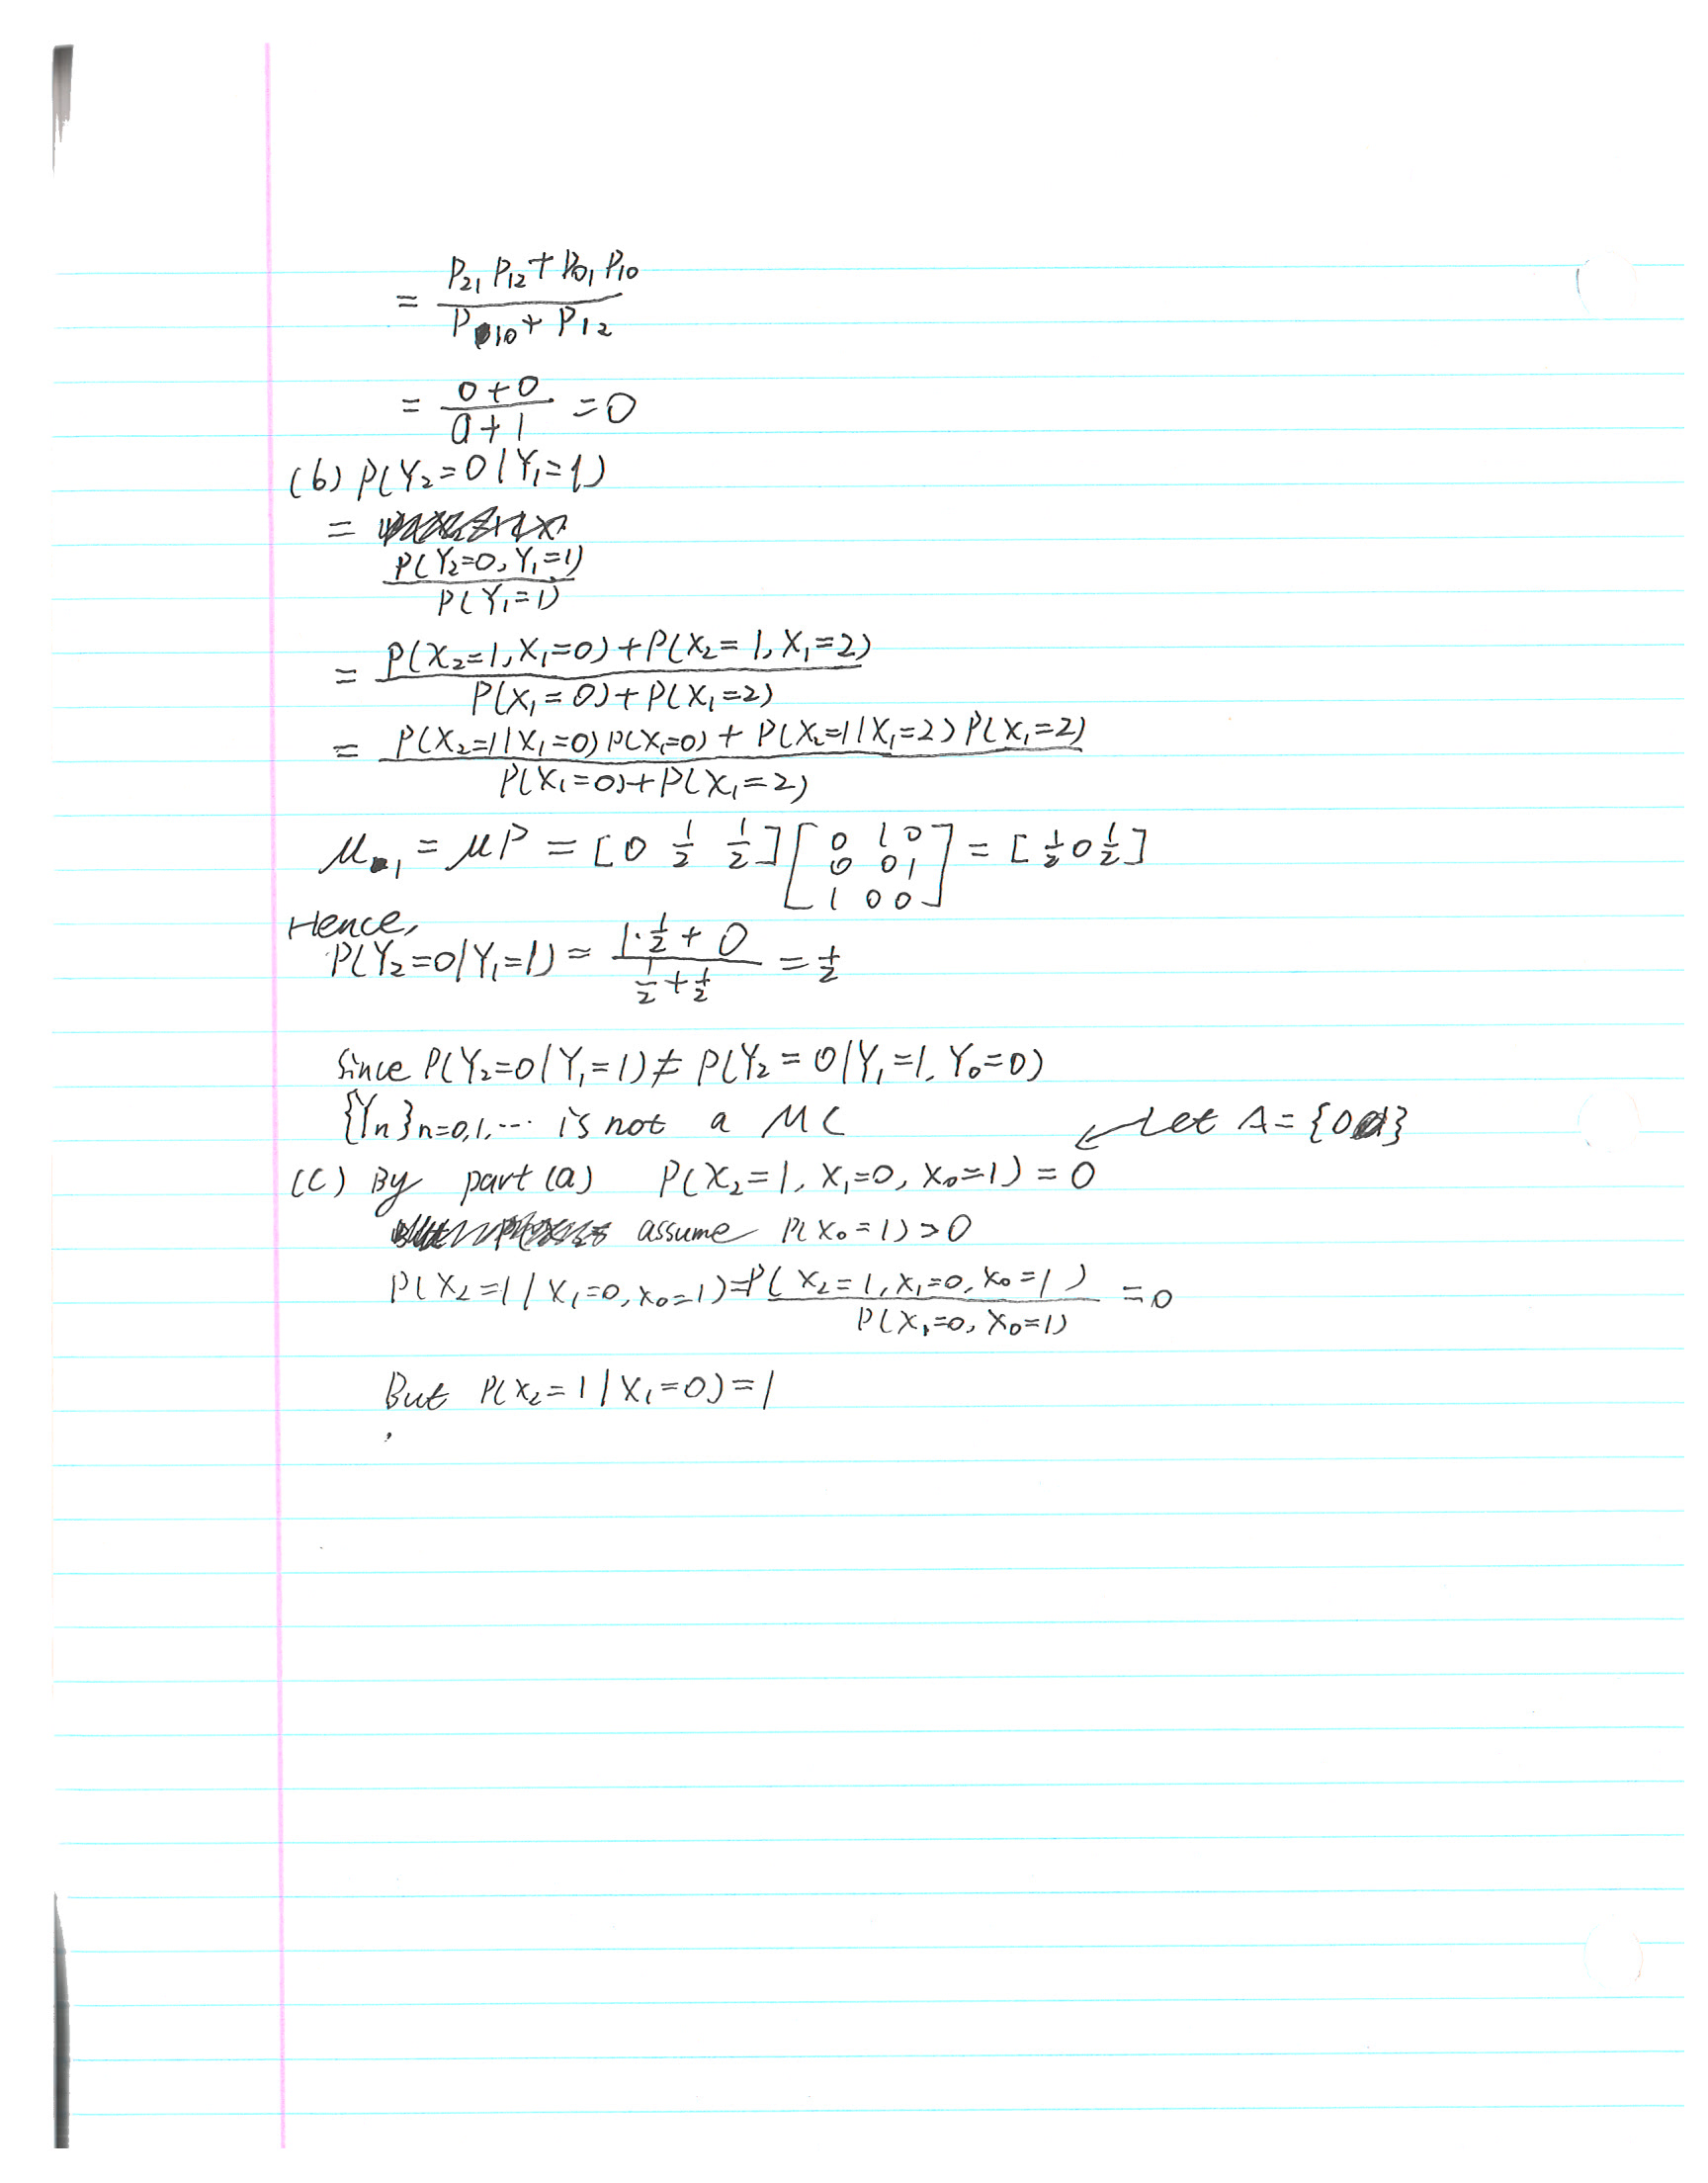 = (P₂₁ P₁₂ + P₀₁ P₁₀) / (P₁₀ + P₁₂)
= (0+0) / (0+1) = 0
(b) P(Y₂=0 | Y₁=1)
=
P(Y₂=0, Y₁=1) / P(Y₁=1)
= (P(X₂=1, X₁=0) + P(X₂=1, X₁=2)) / (P(X₁=0) + P(X₁=2))
= (P(X₂=1 | X₁=0) P(X₁=0) + P(X₂=1 | X₁=2) P(X₁=2)) / (P(X₁=0) + P(X₁=2))
μ₁ = μP = [0 1/2 1/2] [0 1 0; 0 0 1; 1 0 0] = [1/2 0 1/2]
Hence,
P(Y₂=0 | Y₁=1) = (1·1/2 + 0) / (1/2 + 1/2) = 1/2
Since P(Y₂=0 | Y₁=1) ≠ P(Y₂=0 | Y₁=1, Y₀=0)
{Yn}n=0,1,... is not a MC
← Let A = {0 }
(C) By part (a) P(X₂=1, X₁=0, X₀=1) = 0
assume P(X₀=1) > 0
P(X₂=1 | X₁=0, X₀=1) = P(X₂=1, X₁=0, X₀=1) / P(X₁=0, X₀=1) = 0
But P(X₂=1 | X₁=0) = 1